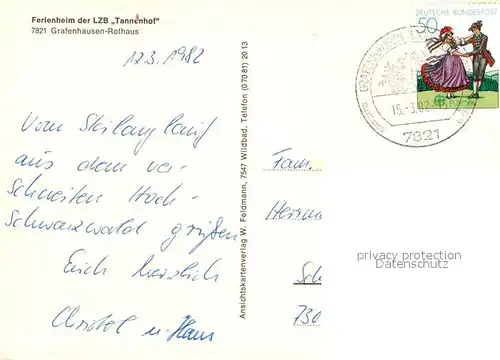 Ferienheim der LZB „Tannenhof"
7821 Grafenhausen-Rothaus
12.3.1982
Vom Skilanglauf
aus dem ver-
schneiten Hoch-
schwarzwald grüßen
Euch herzlich
Christel u. Hans
Ansichtskartenverlag W. Feldmann, 7547 Wildbad, Telefon (0 70 81) 20 13
DEUTSCHE BUNDESPOST
50
EUROPA
GRAFENHAUSEN
15.-3.82-15
7821
Fam.
Herma
Sch
730
privacy protection
Datenschutz